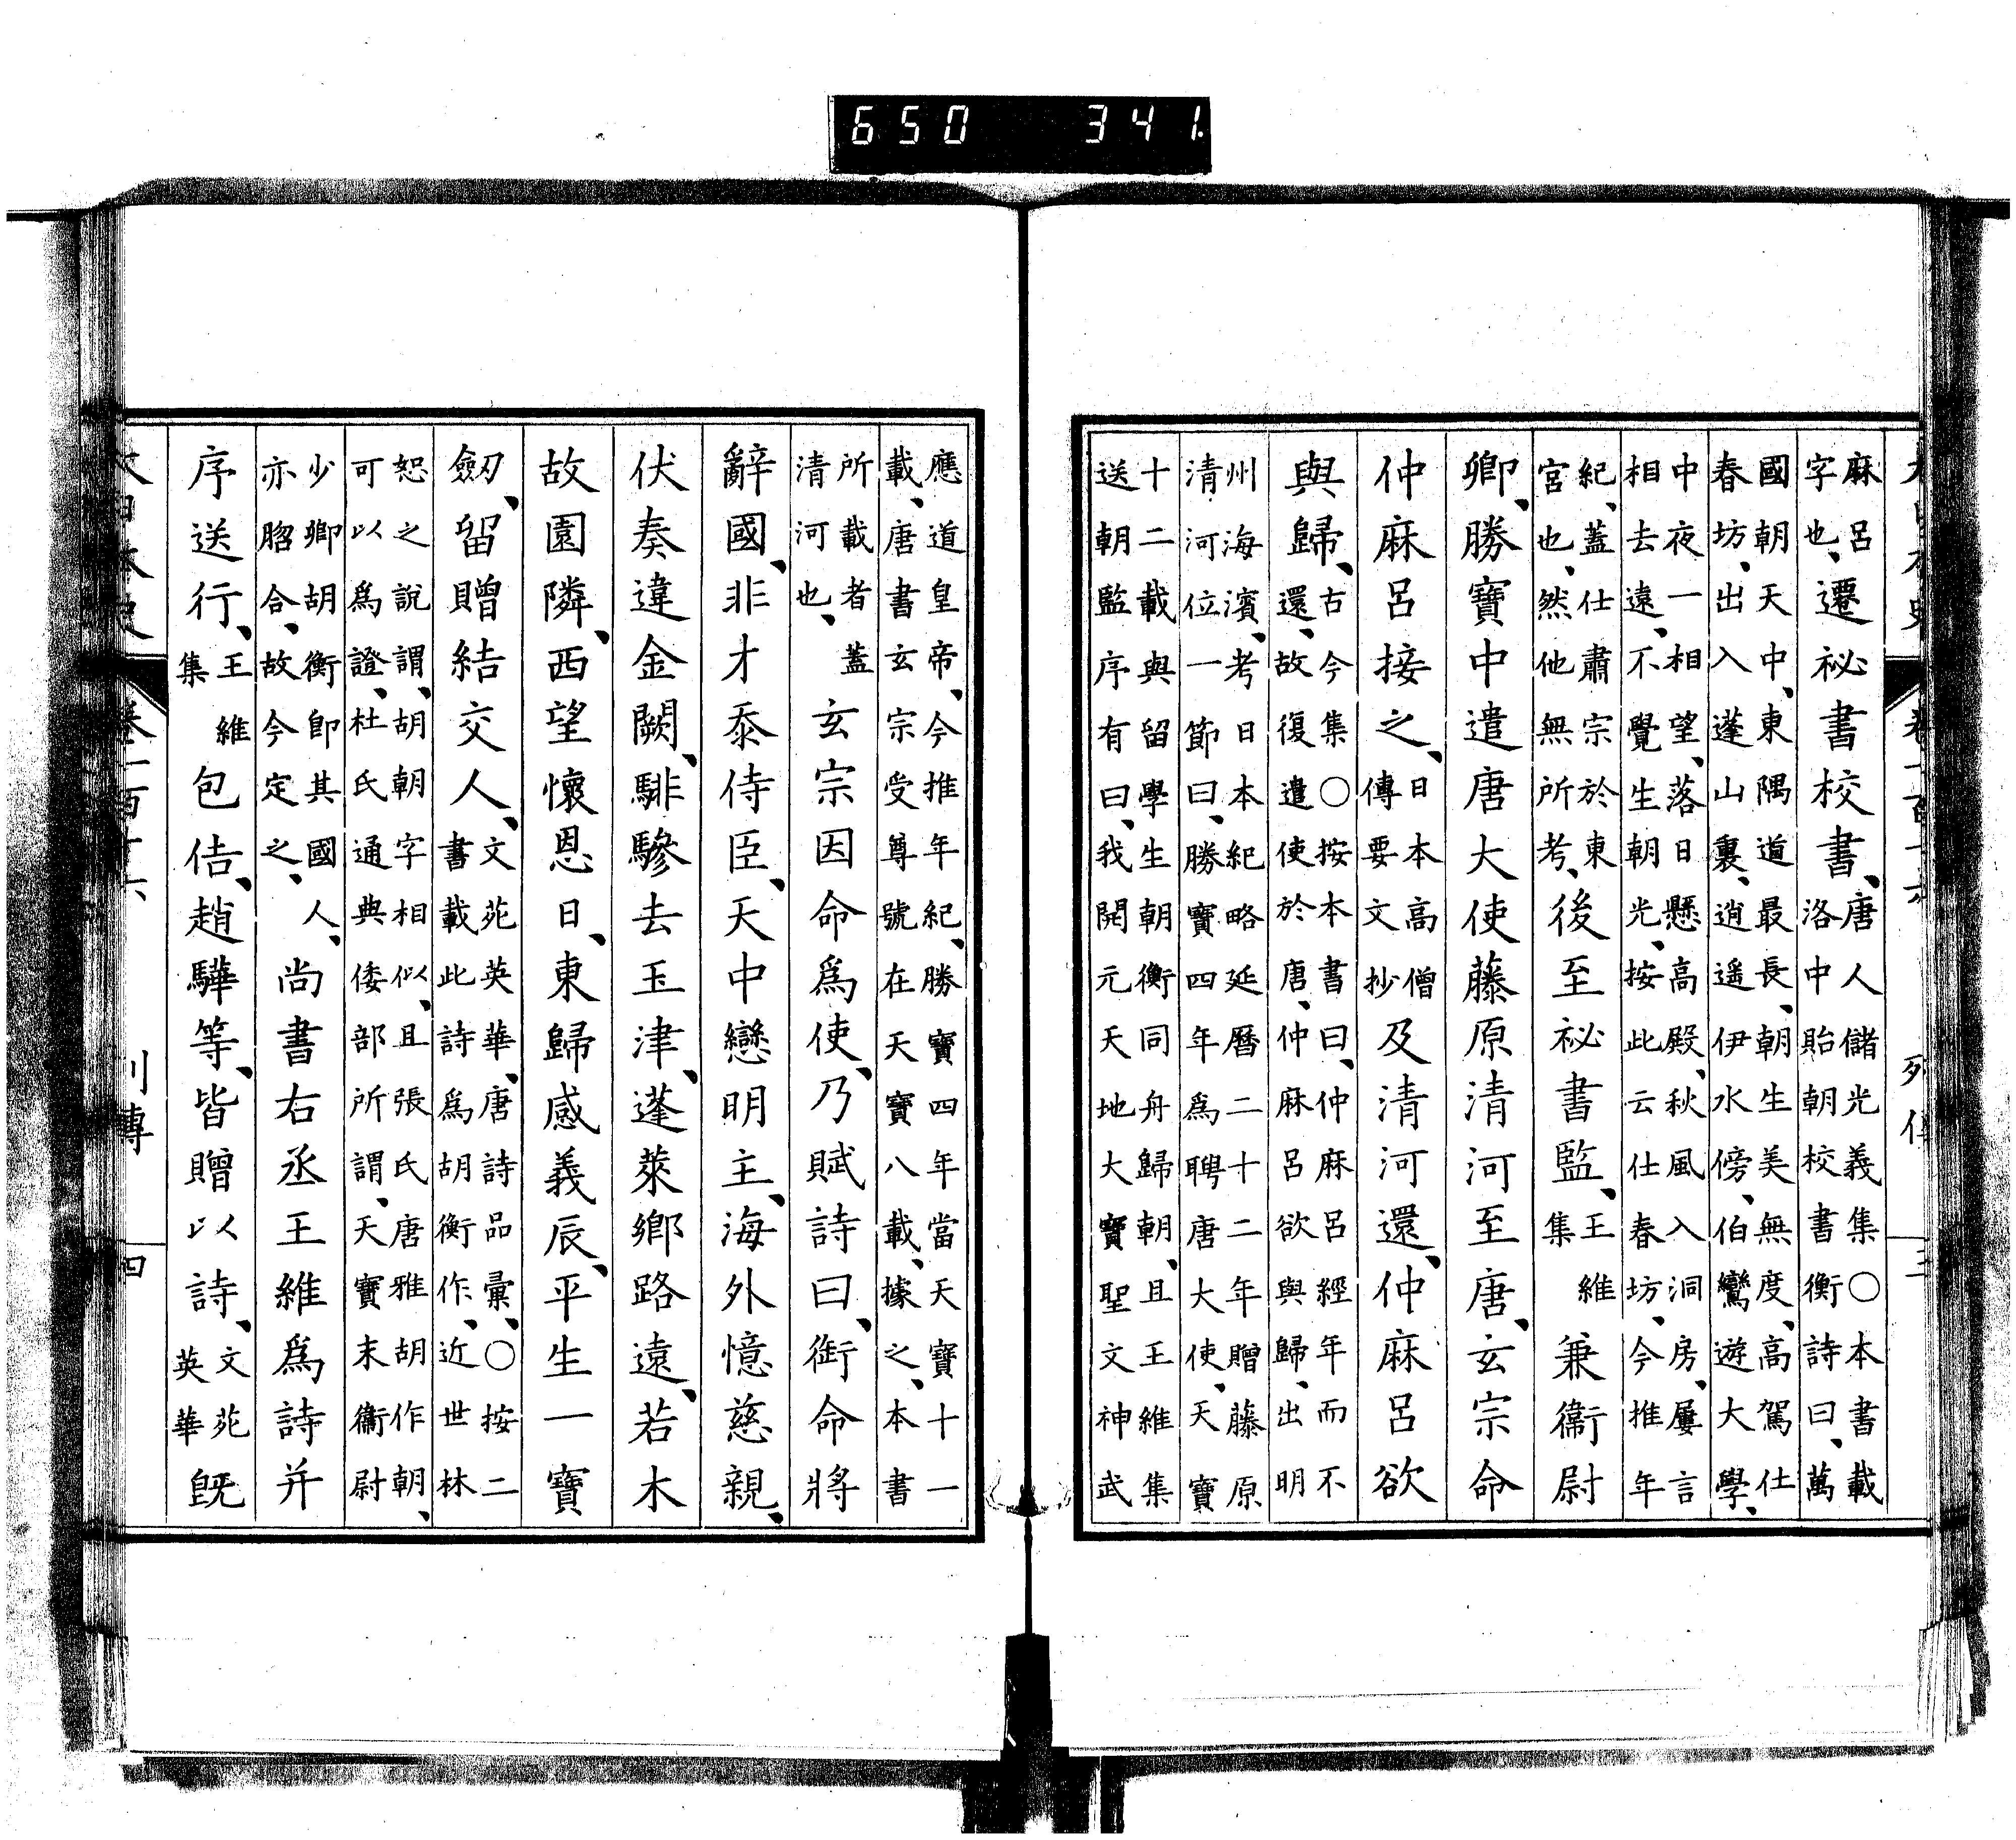 麻呂字也、遷祕書校書、唐人儲光義集〇本書載洛中貽朝校書衡詩曰、萬
國朝天中、東隅道最長、朝生美無度、高駕仕春坊、出入蓬山裏、逍遙伊水傍、伯鸞遊大學、
中夜一相望、落日懸高殿、秋風入洞房、屢言相去遠、不覺生朝光、按此云仕春坊、今推年
紀、蓋仕肅宗於東宮也、然他無所考、後至祕書監、王維集兼衞尉
卿、勝寶中遣唐大使藤原清河至唐、玄宗命
仲麻呂接之、日本高僧傳要文抄及清河還、仲麻呂欲
與歸、古今集〇按本書曰、仲麻呂經年而不還、故復遣使於唐、仲麻呂欲與歸、出明
州海濱、考日本紀略延曆二十二年贈藤原清河位一節曰、勝寶四年爲聘唐大使、天寶
十二載與留學生朝衡同舟歸朝、且王維集送朝監序有曰、我開元天地大寶聖文神武
應道皇帝、今推年紀、勝寶四年當天寶十一載、唐書玄宗受尊號在天寶八載、據之、本書
所載者蓋清河也、玄宗因命爲使、乃賦詩曰、銜命將
辭國、非才忝侍臣、天中戀明主、海外憶慈親、
伏奏違金闕、騑驂去玉津、蓬萊鄉路遠、若木
故園隣、西望懷恩日、東歸感義辰、平生一寶
劔、留贈結交人、文苑英華、唐詩品彙、〇按二書載此詩爲胡衡作、近世林
恕之說謂、胡朝字相似、且張氏唐雅胡作朝、可以爲證、杜氏通典倭部所謂、天寶末衞尉
少卿胡衡卽其國人、亦脗合、故今定之、尚書右丞王維爲詩并
序送行、王維集包佶、趙驊等、皆贈以詩、文苑英華旣
大日本史 卷一百十六 列傳 四